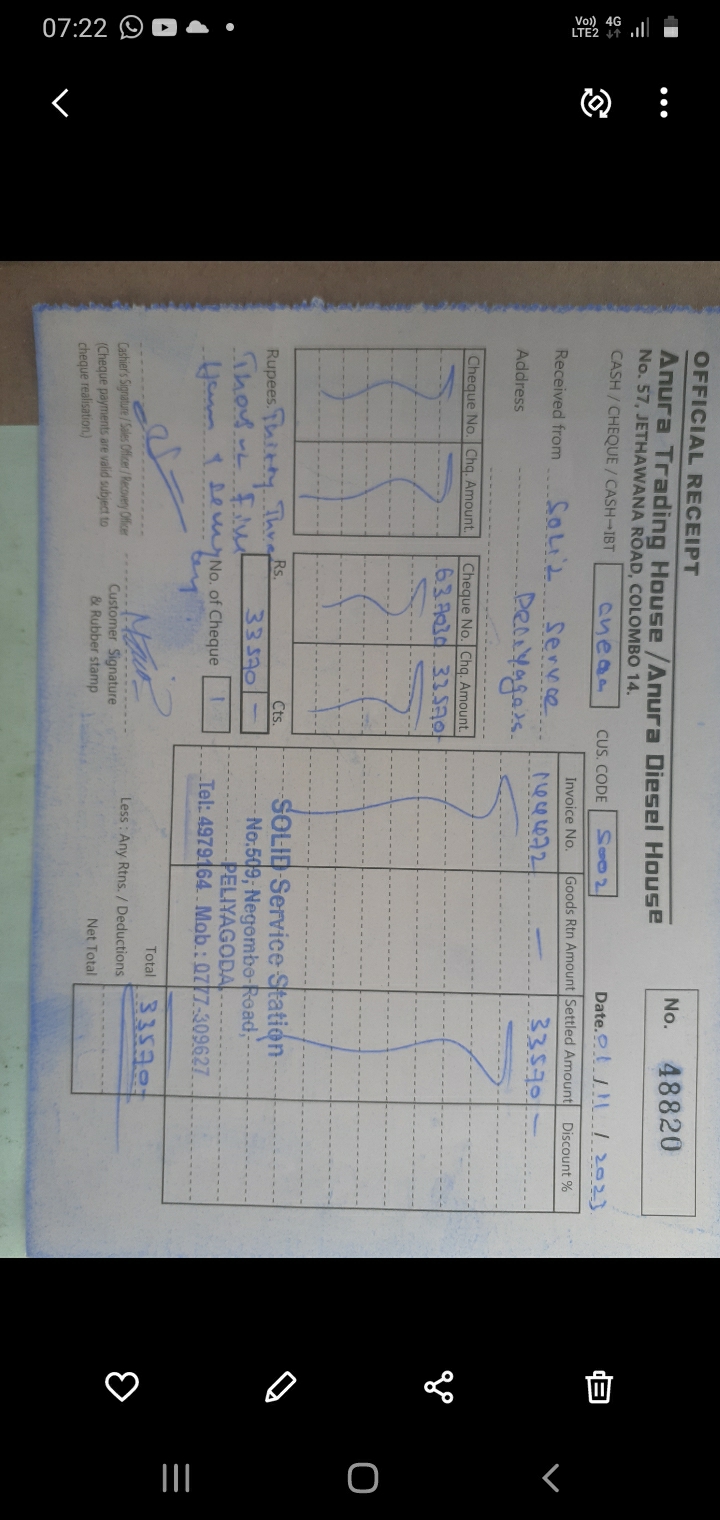 07:22
Vo)) 4G
LTE2
OFFICIAL RECEIPT
Anura Trading House / Anura Diesel House
No. 57, JETHAWANA ROAD, COLOMBO 14.
No. 48820
CASH / CHEQUE / CASH→IBT
CUS. CODE S002
Date. 01 / 11 / 2023
Received from Solid Service
Address Peliyagoda.
Cheque No. Chq. Amount. Cheque No. Chq. Amount.
33570-
Invoice No. Goods Rtn Amount Settled Amount Discount %
— 33570 —
Rupees Thirty Three
Rs. Cts.
33570 —
No. of Cheque 1
SOLID Service Station
No.509, Negombo Road,
PELIYAGODA.
Tel: 4979164 Mob : 0777-309627
Total 33570-
Less : Any Rtns. / Deductions
Net Total
Cashier's Signature / Sales Officer / Recovery Officer
(Cheque payments are valid subject to
cheque realisation.)
Customer Signature
& Rubber stamp